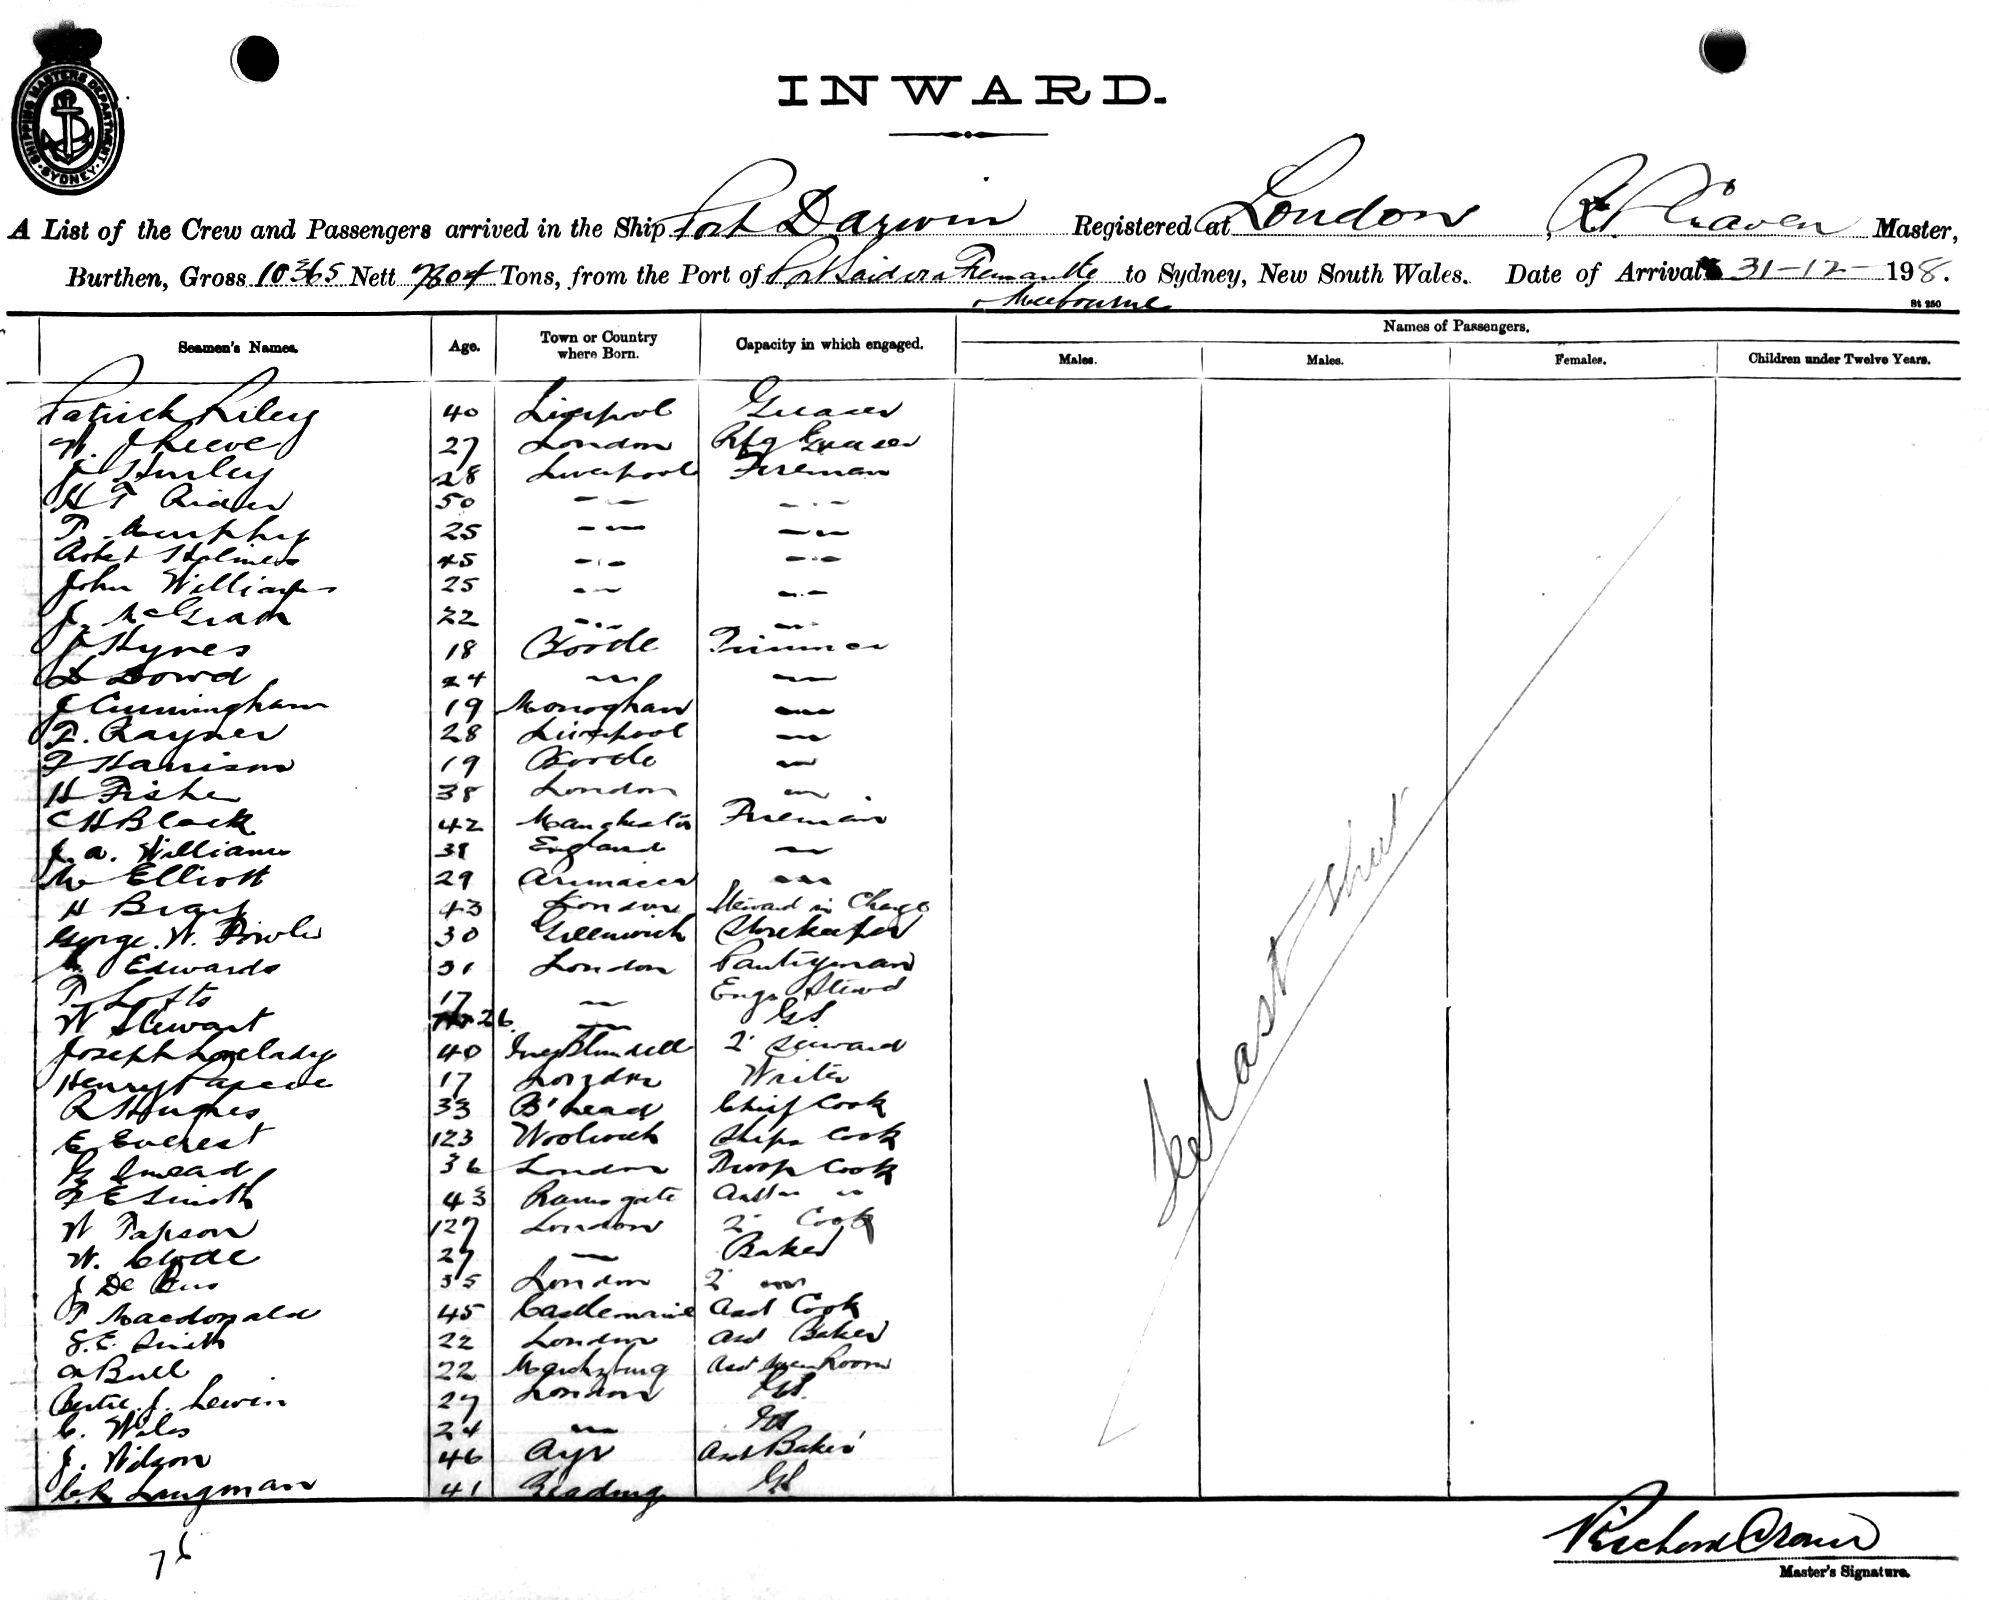 SHIPPING MASTERS DEPARTMENT
SYDNEY
INWARD.
A List of the Crew and Passengers arrived in the Ship Port Darwin Registered at London, R. Craven Master,
Burthen, Gross 10365 Nett Tons, from the Port of Fremantle to Sydney, New South Wales. Date of Arrival 31-12-198.
Melbourne
St 250
Seamen's Names. Age. Town or Country where Born. Capacity in which engaged. Names of Passengers.
Males. Males. Females. Children under Twelve Years.
Patrick Riley 40 Liverpool Greaser
W. J Reeve 27 London Rfg Greaser
J Hurley 28 Liverpool Fireman
H T Rider 50 — —
T. Murphy 25 — —
Robt Holmes 45 — —
John Williams 25 — —
J. McGrath 22 — —
J Hynes 18 Bootle Trimmer
D Dowd 24 — —
J Cunningham 19 Monoghan —
T. Rayner 28 Liverpool —
F Harrison 19 Bootle —
H Fisher 38 London —
C H Black 42 Manchester Fireman
J. A. Williams 38 England —
Elliott 29 —
H Bray 43 London Steward in Charge
George. W. Fowler 30 Greenwich Storekeeper
Edwards 31 London Pantryman
T. Lofts 17 — Engs Stewd
W Stewart 26 — GS.
Joseph Lovelady 40 Ince Blundell 2' Steward
Henry Pascoe 17 London Writer
R Hughes 33 B'head Chief Cook
E Everest 23 Woolwich Ships Cook
G Smead 36 London Troop Cook
F E Smith 43 Ramsgate
W Tapson 27 London 2' Cook
W. Clode 27 — Baker
J De 35 London 2' —
T Macdonald 45 Castlemaine Asst Cook
S. E. Smith 22 London Asst Baker
A Bull 22 Asst Room
Bertie. J. Lewin 27 London GS.
C. Wales 24 — GS
J. Wilson 46 Ayr Asst Baker
C. R Langman 41 Reading GS.
Last Sheet
76
Richard Craven
Master's Signature.